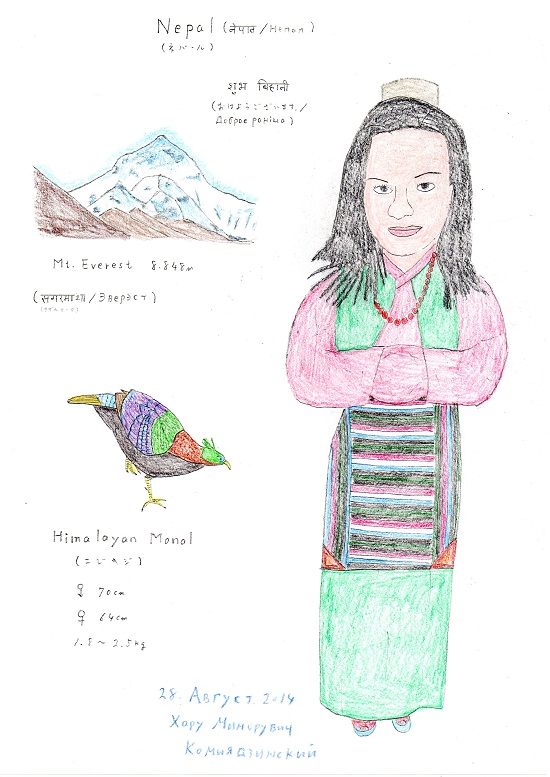 Nepal (नेपाल / Непал)
(ネパール)
शुभ बिहानी
(おはようございます /
Доброе раніша)
Mt. Everest 8.848m
(सगरमाथा / Эверэст)
Himalayan Monal
(ニジキジ)
70cm
♀ 64cm
1.8 ~ 2.5kg
28. Август 2014
Хару Минорувич
Комиядзинский